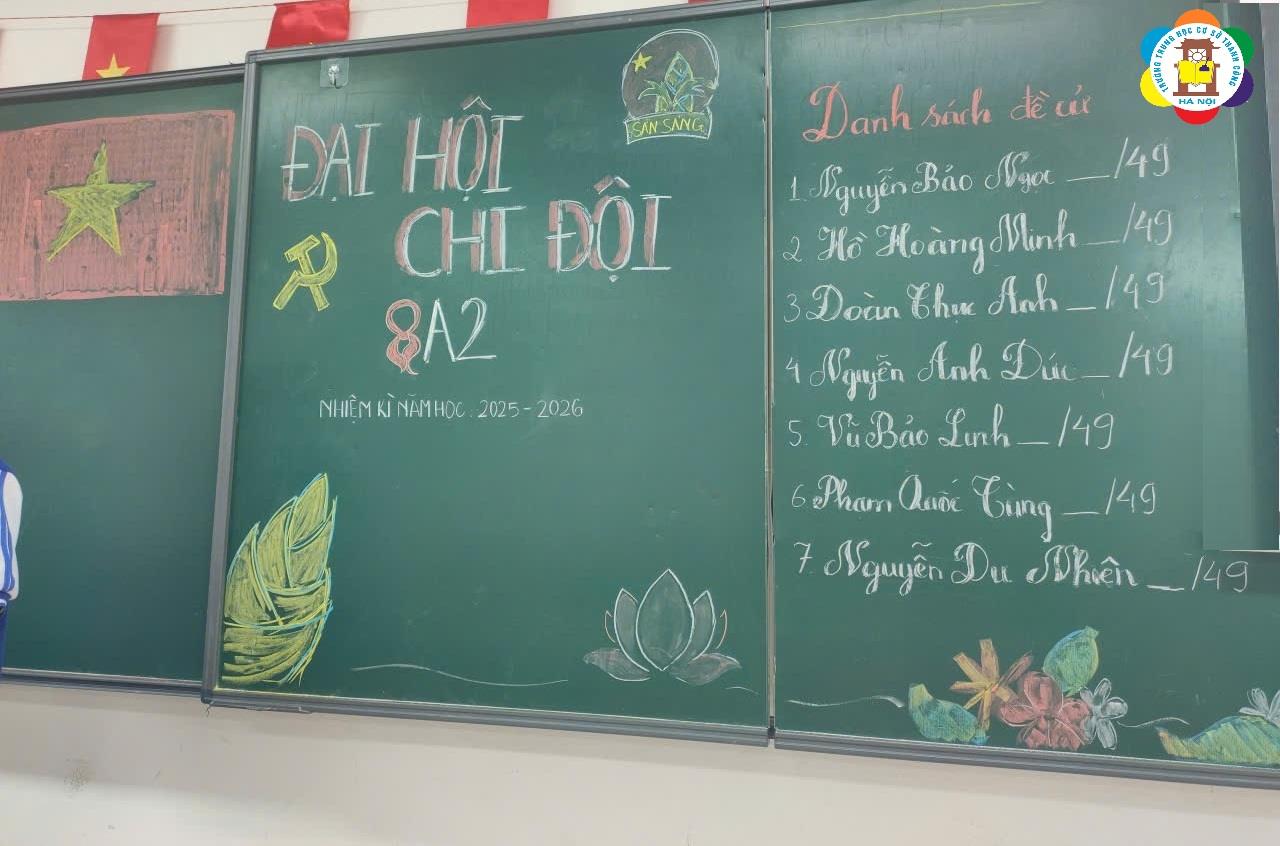 ĐẠI HỘI
CHI ĐỘI
8A2
NHIỆM KÌ NĂM HỌC : 2025 - 2026
SẴN SÀNG
Danh sách đề cử
1. Nguyễn Bảo Ngọc __/49
2 Hồ Hoàng Minh __/49
3 Đoàn Thục Anh __/49
4 Nguyễn Anh Đức __/49
5. Vũ Bảo Linh __/49
6 Phạm Quốc Tùng __/49
7. Nguyễn Du Nhiên __/49
TRƯỜNG TRUNG HỌC CƠ SỞ THÀNH CÔNG
HÀ NỘI